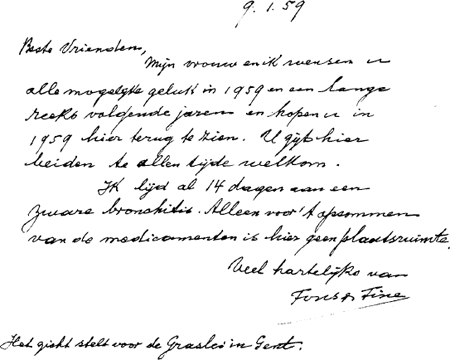 9.1.59
Beste Vrienden,
Mijn vrouw en ik wensen u
alle mogelijke geluk in 1959 en een lange
reeks volgende jaren en hopen u in
1959 hier terug te zien. U zijt hier
beiden te allen tijde welkom.
Ik lijd al 14 dagen aan een
zware bronchitis. Alleen voor 't opsommen
van de medicamenten is hier geen plaatsruimte.
Veel hartelijks van
Fons & Fine
Het zicht stelt voor de Graslei in Gent.